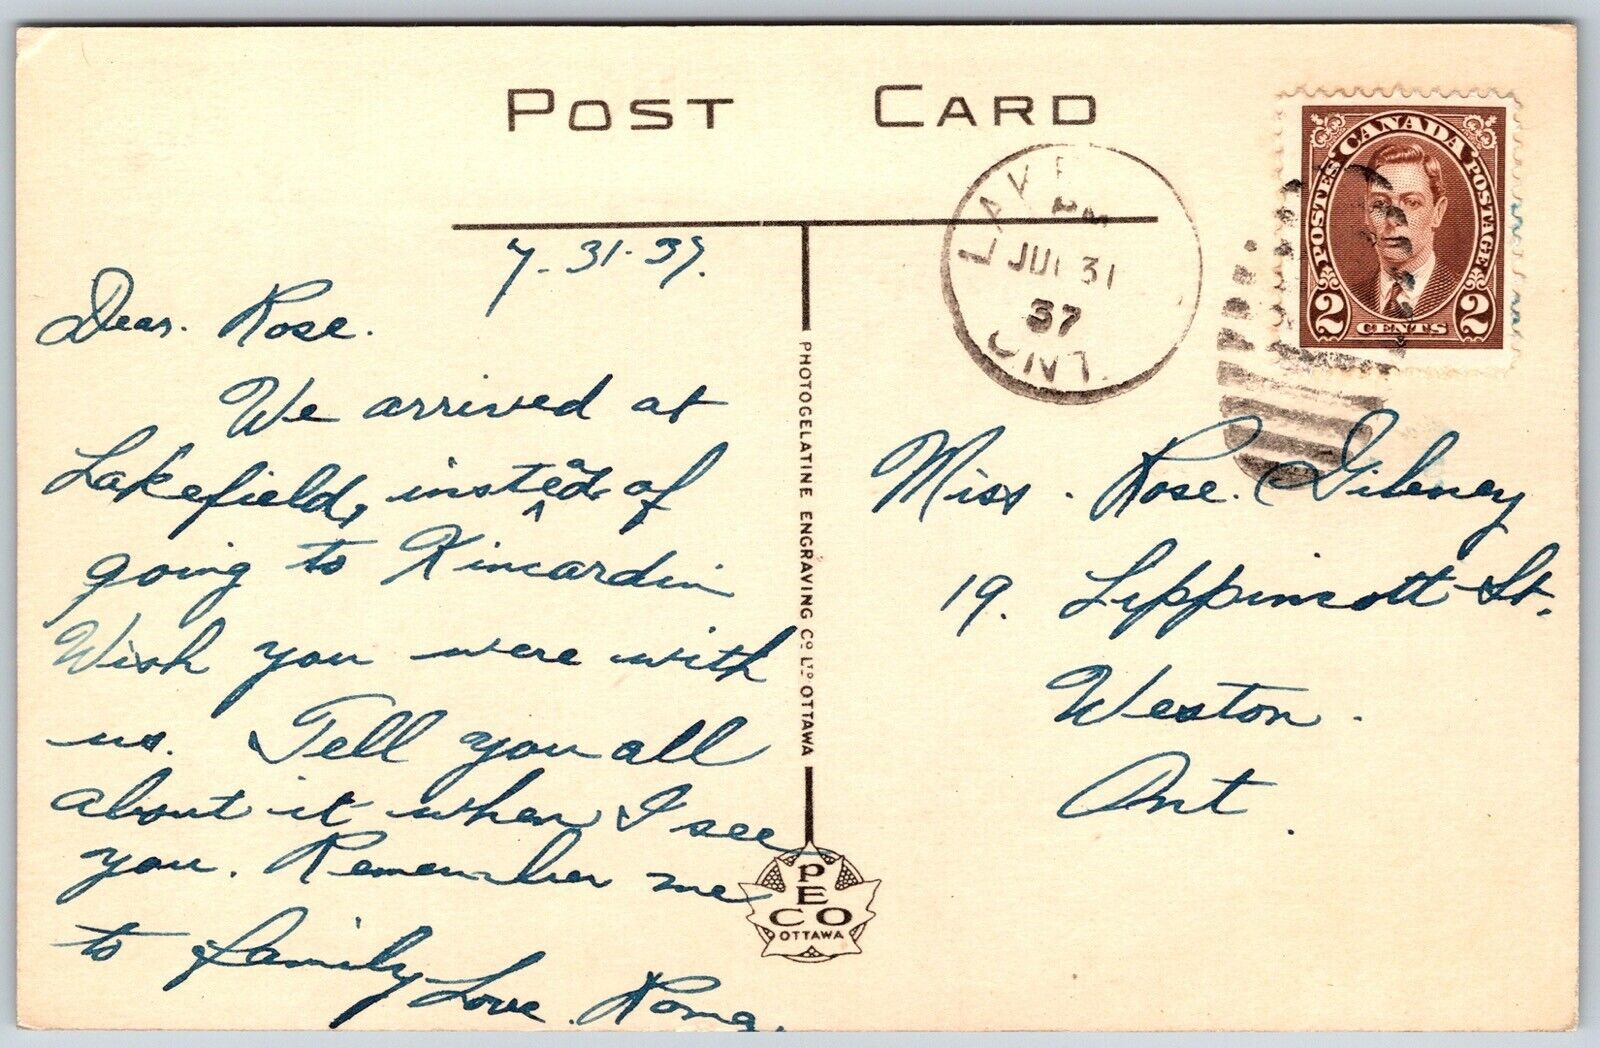 POST CARD
LAKE
PM
JUL 31
37
ONT.
POSTES CANADA POSTAGE
2 CENTS 2
7. 31. 37.
Dear. Rose.
We arrived at
Lakefield, instead of
going to Kincardin
Wish you were with
us. Tell you all
about it when I see
you. Remember me
to family Love. Roma.
PHOTOGELATINE ENGRAVING CO LTD OTTAWA
PECO
OTTAWA
Miss. Rose. Gibney
19. Lippincott St.
Weston.
Ont.